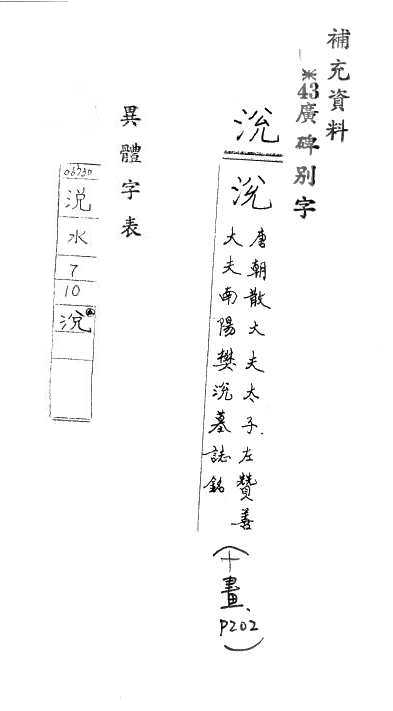 補充資料
※43廣碑別字
涗
涗
唐朝散大夫太子左贊善
大夫南陽樊涗墓誌銘
(十畫、P202)
異體字表
06730
涗
水
7
10
涚